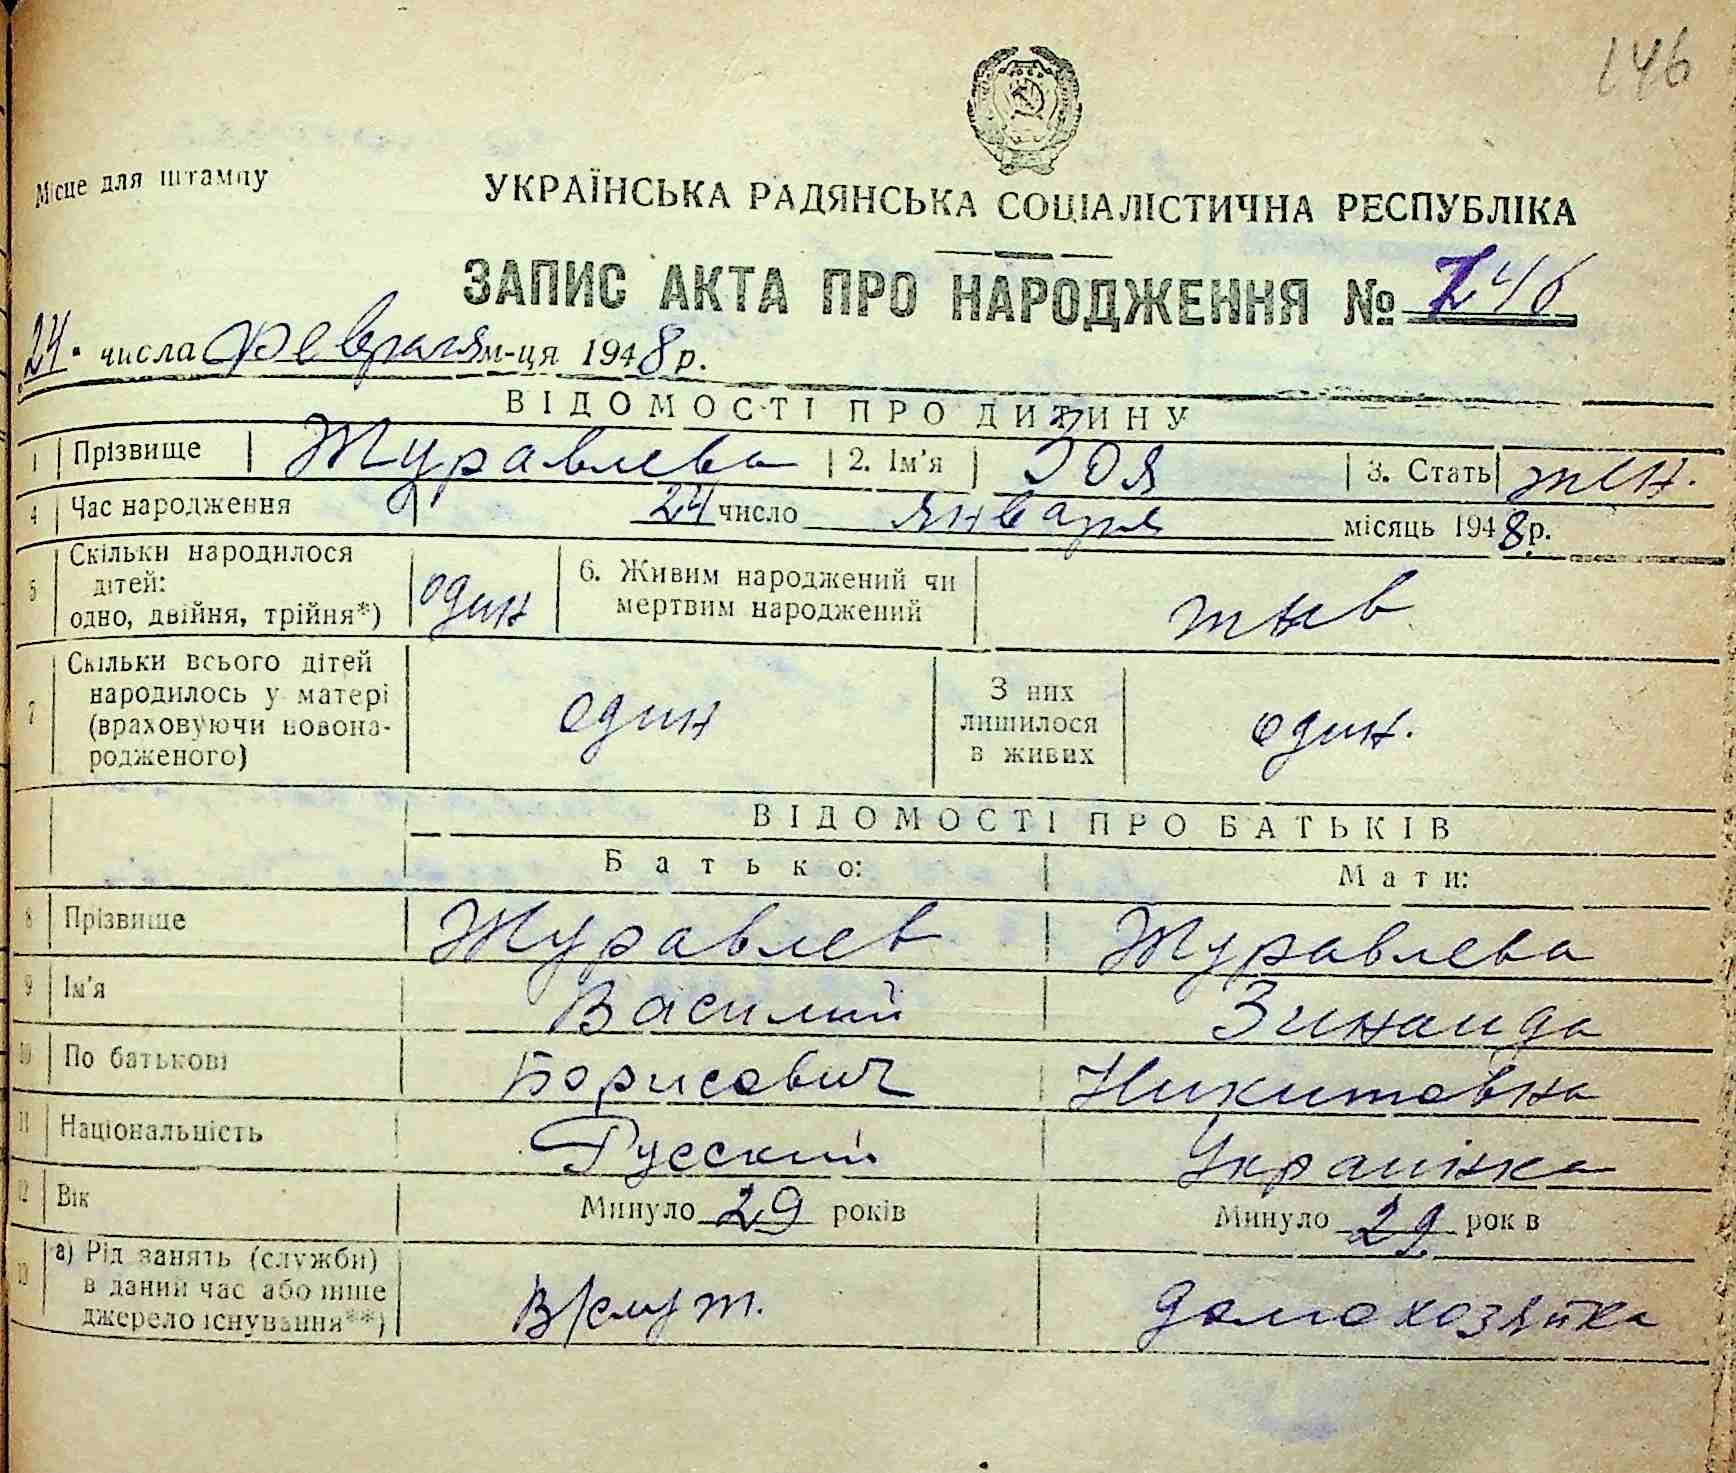 146
Місце для штампу
УКРАЇНСЬКА РАДЯНСЬКА СОЦІАЛІСТИЧНА РЕСПУБЛІКА
ЗАПИС АКТА ПРО НАРОДЖЕННЯ № 246
24. числа февраля м-ця 1948 р.
ВІДОМОСТІ ПРО ДИТИНУ
1 Прізвище Журавлева 2. Ім'я Зоя 3. Стать жен.
4 Час народження 24 число января місяць 1948 р.
5 Скільки народилося дітей: одно, двійня, трійня*) один 6. Живим народжений чи мертвим народжений жив
7 Скільки всього дітей народилось у матері (враховуючи новонародженого) один З них лишилося в живих один.
ВІДОМОСТІ ПРО БАТЬКІВ
Батько: Мати:
8 Прізвище Журавлев Журавлева
9 Ім'я Василий Зинаида
10 По батькові Борисович Никитовна
11 Національність Русский Українка
12 Вік Минуло 29 років Минуло 29 рок в
13 а) Рід занять (служби) в даний час або інше джерело існування**) В/служ. домохозяйка